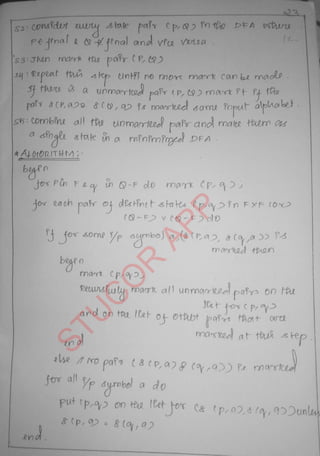 23
S2: Consider every state pair (P,Q) in the DFA where
P∈ final & Q ∉ final and vice versa.
S3: Then mark the pair (P,Q)
S4: Repeat this step until no more mark can be made.
If there is a unmarked pair (P,Q) mark it if the
pair δ(P,a) δ(Q,a) is marked some input alphabet.
S5: Combine all the unmarked pair and make them as
a single state in a minimized DFA.
* ALGORITHM:-
begin
for P in F & q in Q-F do mark (p,q);
for each pair of distinct states (p,q) in F×F (or)
(Q-F) × (Q-F) do
if for some i/p symbol a (δ(p,a), δ(q,a)) is
marked then
begin
mark (p,q);
recursively mark all unmarked pairs on the
list for (p,q)
and on the list of other pairs that are
marked at this step.
end
else no pair (δ(p,a) δ(q,a)) is marked
for all i/p symbol a do
put (p,q) on the list for (δ(p,a), δ(q,a)) unless
δ(p,a) = δ(q,a)
end.
STUCOR APP